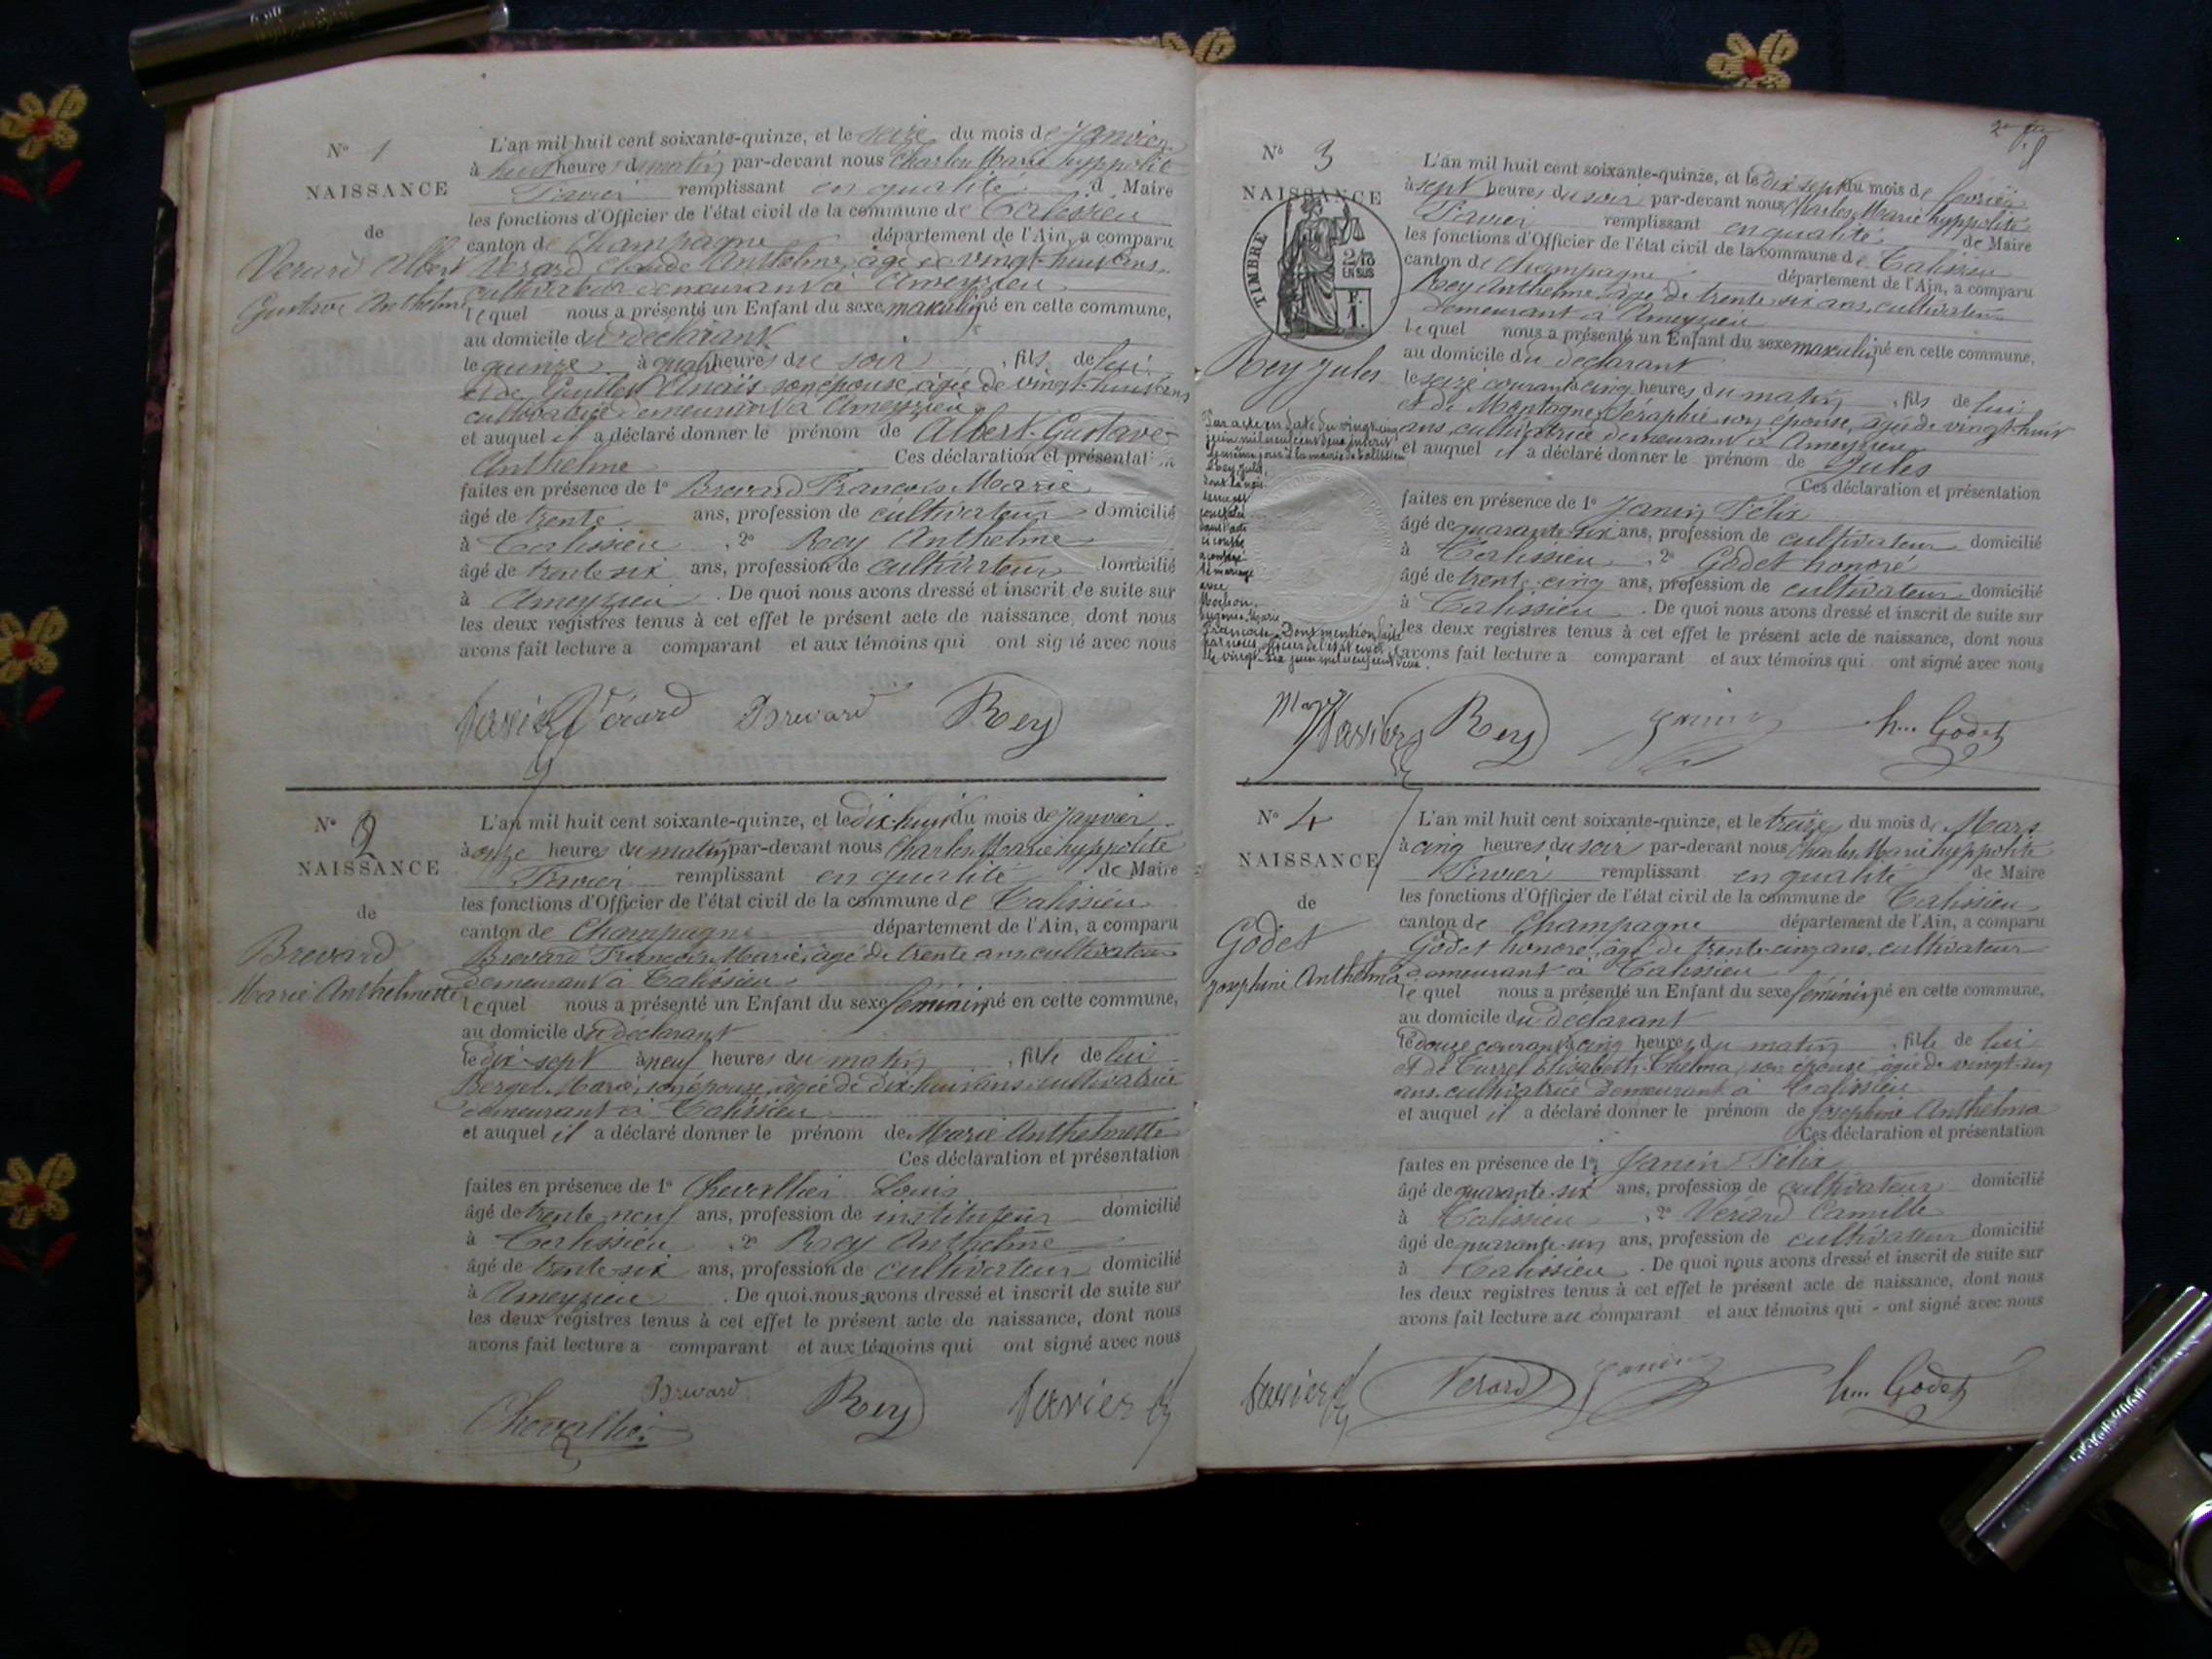 N° 1
NAISSANCE
de
Verard Albert
Gustave Anthelme
L'an mil huit cent soixante-quinze, et le seize du mois de Janvier
à huit heures du matin par-devant nous Charles Marie hyppolite
Tavier remplissant en qualité d Maire
les fonctions d'Officier de l'état civil de la commune de Talissieu
canton de Champagne département de l'Ain, a comparu
Verard Claude Anthelme, âgé de vingt-huit ans,
cultivateur demeurant à Ameyzieu
lequel nous a présenté un Enfant du sexe masculin né en cette commune,
au domicile du déclarant
le quinze à quatre heures du soir , fils de lui
et de Guillet Anaïs son épouse, âgée de vingt-huit ans
cultivatrice demeurant à Ameyzieu
et auquel il a déclaré donner le prénom de Albert-Gustave-
Anthelme Ces déclaration et présentation
faites en présence de 1° Brevard François Marie
âgé de trente ans, profession de cultivateur domicilié
à Talissieu , 2° Rey Anthelme
âgé de trente six ans, profession de cultivateur domicilié
à Ameyzieu . De quoi nous avons dressé et inscrit de suite sur
les deux registres tenus à cet effet le présent acte de naissance, dont nous
avons fait lecture a comparant et aux témoins qui ont signé avec nous
Tavier Vérard Brevard Rey
N° 2
NAISSANCE
de
Brevard
Marie Anthelmette
L'an mil huit cent soixante-quinze, et le dix-huit du mois de Janvier
à onze heures du matin par-devant nous Charles Marie hyppolite
Tavier remplissant en qualité de Maire
les fonctions d'Officier de l'état civil de la commune de Talissieu
canton de Champagne département de l'Ain, a comparu
Brevard François Marie, âgé de trente ans, cultivateur
demeurant à Talissieu
lequel nous a présenté un Enfant du sexe féminin né en cette commune,
au domicile du déclarant
le dix-sept à neuf heures du matin , fille de lui
Berget Marie, son épouse, âgée de dix-huit ans, cultivatrice
demeurant à Talissieu
et auquel il a déclaré donner le prénom de Marie Anthelmette
Ces déclaration et présentation
faites en présence de 1° Chevallier Louis
âgé de trente neuf ans, profession de instituteur domicilié
à Talissieu , 2° Rey Anthelme
âgé de trente-six ans, profession de cultivateur domicilié
à Ameyzieu . De quoi nous avons dressé et inscrit de suite sur
les deux registres tenus à cet effet le présent acte de naissance, dont nous
avons fait lecture a comparant et aux témoins qui ont signé avec nous
Brevard
Chevallier Rey Tavier
N° 3
NAISSANCE
TIMBRE
2/10
EN SUS
F.
1.
Rey Jules
L'an mil huit cent soixante-quinze, et le dix sept du mois de février
à sept heures du soir par-devant nous Charles Marie hyppolite
Tavier remplissant en qualité de Maire
les fonctions d'Officier de l'état civil de la commune de Talissieu
canton de Champagne département de l'Ain, a comparu
Rey Anthelme, âgé de trente six ans, cultivateur
demeurant à Ameyzieu
lequel nous a présenté un Enfant du sexe masculin né en cette commune,
au domicile du déclarant
le seize courant à cinq heures du matin , fils de lui
et de Montagne Séraphie son épouse, âgée de vingt-huit
ans, cultivatrice demeurant à Ameyzieu
et auquel il a déclaré donner le prénom de Jules
Ces déclaration et présentation
faites en présence de 1° Janin Félix
âgé de quarante-six ans, profession de cultivateur domicilié
à Talissieu , 2° Godet honoré
âgé de trente-cinq ans, profession de cultivateur domicilié
à Talissieu . De quoi nous avons dressé et inscrit de suite sur
les deux registres tenus à cet effet le présent acte de naissance, dont nous
avons fait lecture a comparant et aux témoins qui ont signé avec nous
Par acte en date du vingt cinq
juin mil neuf cent deux inscrit
à la mairie de Talissieu
Rey Jules,
dont la nais-
sance est
constatée
dans l'acte
ci contre
a contracté
mariage
avec
Eugénie Marie
Françoise. Dont mention faite
par nous, officier de l'état civil
le vingt-six juin mil neuf cent deux.
Tavier Rey Janin h... Godet
N° 4
NAISSANCE
de
Godet
Joséphine Anthelma
L'an mil huit cent soixante-quinze, et le treize du mois de Mars
à cinq heures du soir par-devant nous Charles Marie hyppolite
Tavier remplissant en qualité de Maire
les fonctions d'Officier de l'état civil de la commune de Talissieu
canton de Champagne département de l'Ain, a comparu
Godet honoré, âgé de trente-cinq ans, cultivateur
demeurant à Talissieu
lequel nous a présenté un Enfant du sexe féminin né en cette commune,
au domicile du déclarant
le douze courant à cinq heures du matin , fille de lui
et de Elisabeth Thelma, son épouse âgée de vingt-un
ans, cultivatrice demeurant à Talissieu
et auquel il a déclaré donner le prénom de Joséphine Anthelma
Ces déclaration et présentation
faites en présence de 1° Janin Félix
âgé de quarante-six ans, profession de cultivateur domicilié
à Talissieu , 2° Vérard Camille
âgé de quarante-un ans, profession de cultivateur domicilié
à Talissieu . De quoi nous avons dressé et inscrit de suite sur
les deux registres tenus à cet effet le présent acte de naissance, dont nous
avons fait lecture au comparant et aux témoins qui - ont signé avec nous
Tavier Verard Janin h... Godet